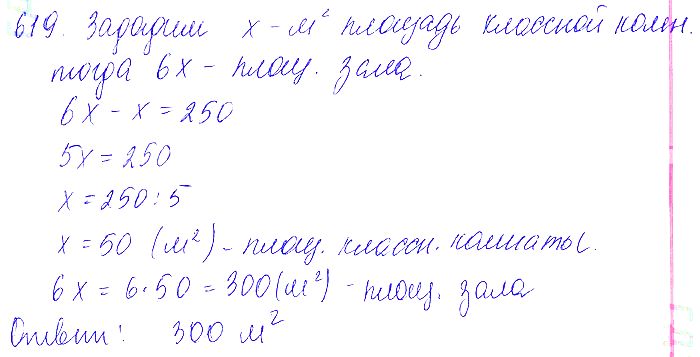 619. Зададим x - м² площадь классной комн.
тогда 6x - площ. зала.
6x - x = 250
5x = 250
x = 250 : 5
x = 50 (м²) - площ. классн. комнаты.
6x = 6·50 = 300 (м²) - площ. зала
Ответ: 300 м²